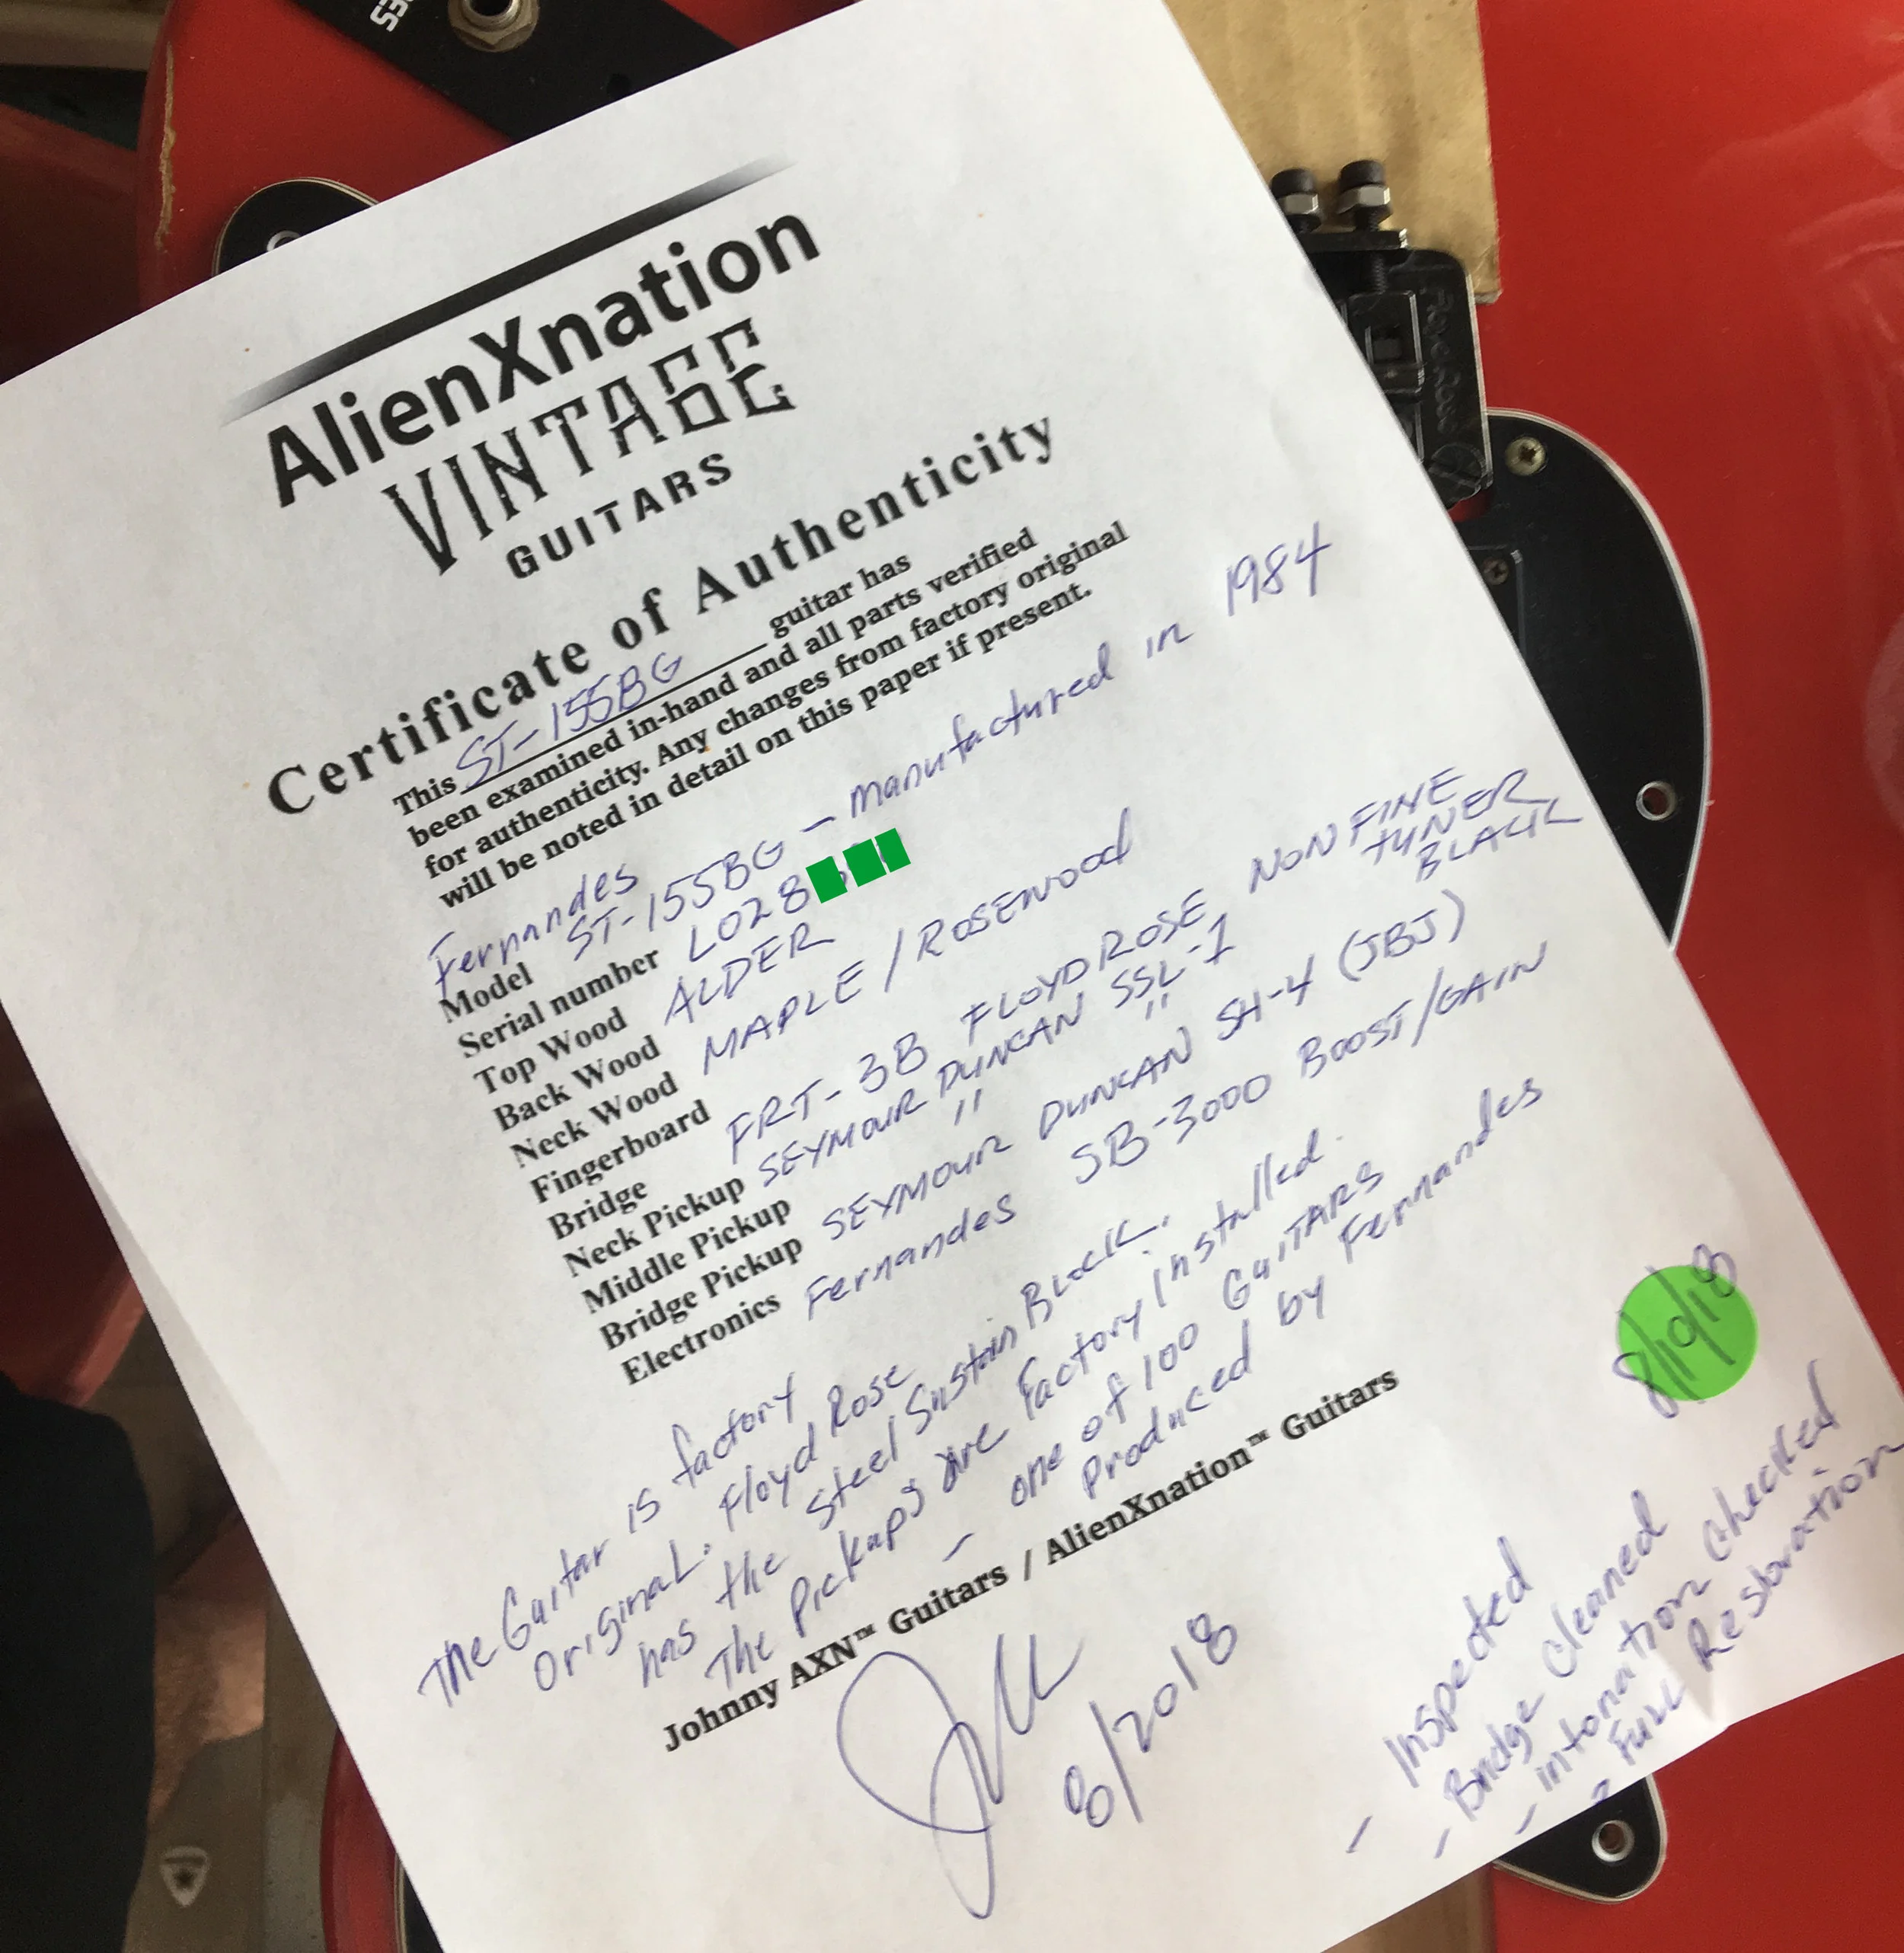 AlienXnation
VINTAGE
GUITARS
Certificate of Authenticity
This ST-155BG guitar has
been examined in-hand and all parts verified
for authenticity. Any changes from factory original
will be noted in detail on this paper if present.
Fernandes
Model ST-155BG - Manufactured in 1984
Serial number L028
Top Wood ALDER
Back Wood
Neck Wood MAPLE / ROSEWOOD
Fingerboard
Bridge FRT-3B FLOYD ROSE NON FINE TUNER BLACK
Neck Pickup SEYMOUR DUNCAN SSL-1
Middle Pickup " "
Bridge Pickup SEYMOUR DUNCAN SH-4 (JBJ)
Electronics Fernandes SB-3000 BOOST/GAIN
The Guitar is factory
Original. Floyd Rose
has the Steel Sustain Block.
The Pickups are Factory Installed.
- one of 100 GUITARS
Produced by Fernandes
Johnny AXN™ Guitars / AlienXnation™ Guitars
8/2018
8/10/18
- Inspected
- Bridge Cleaned
- intonation checked
- Full Restoration